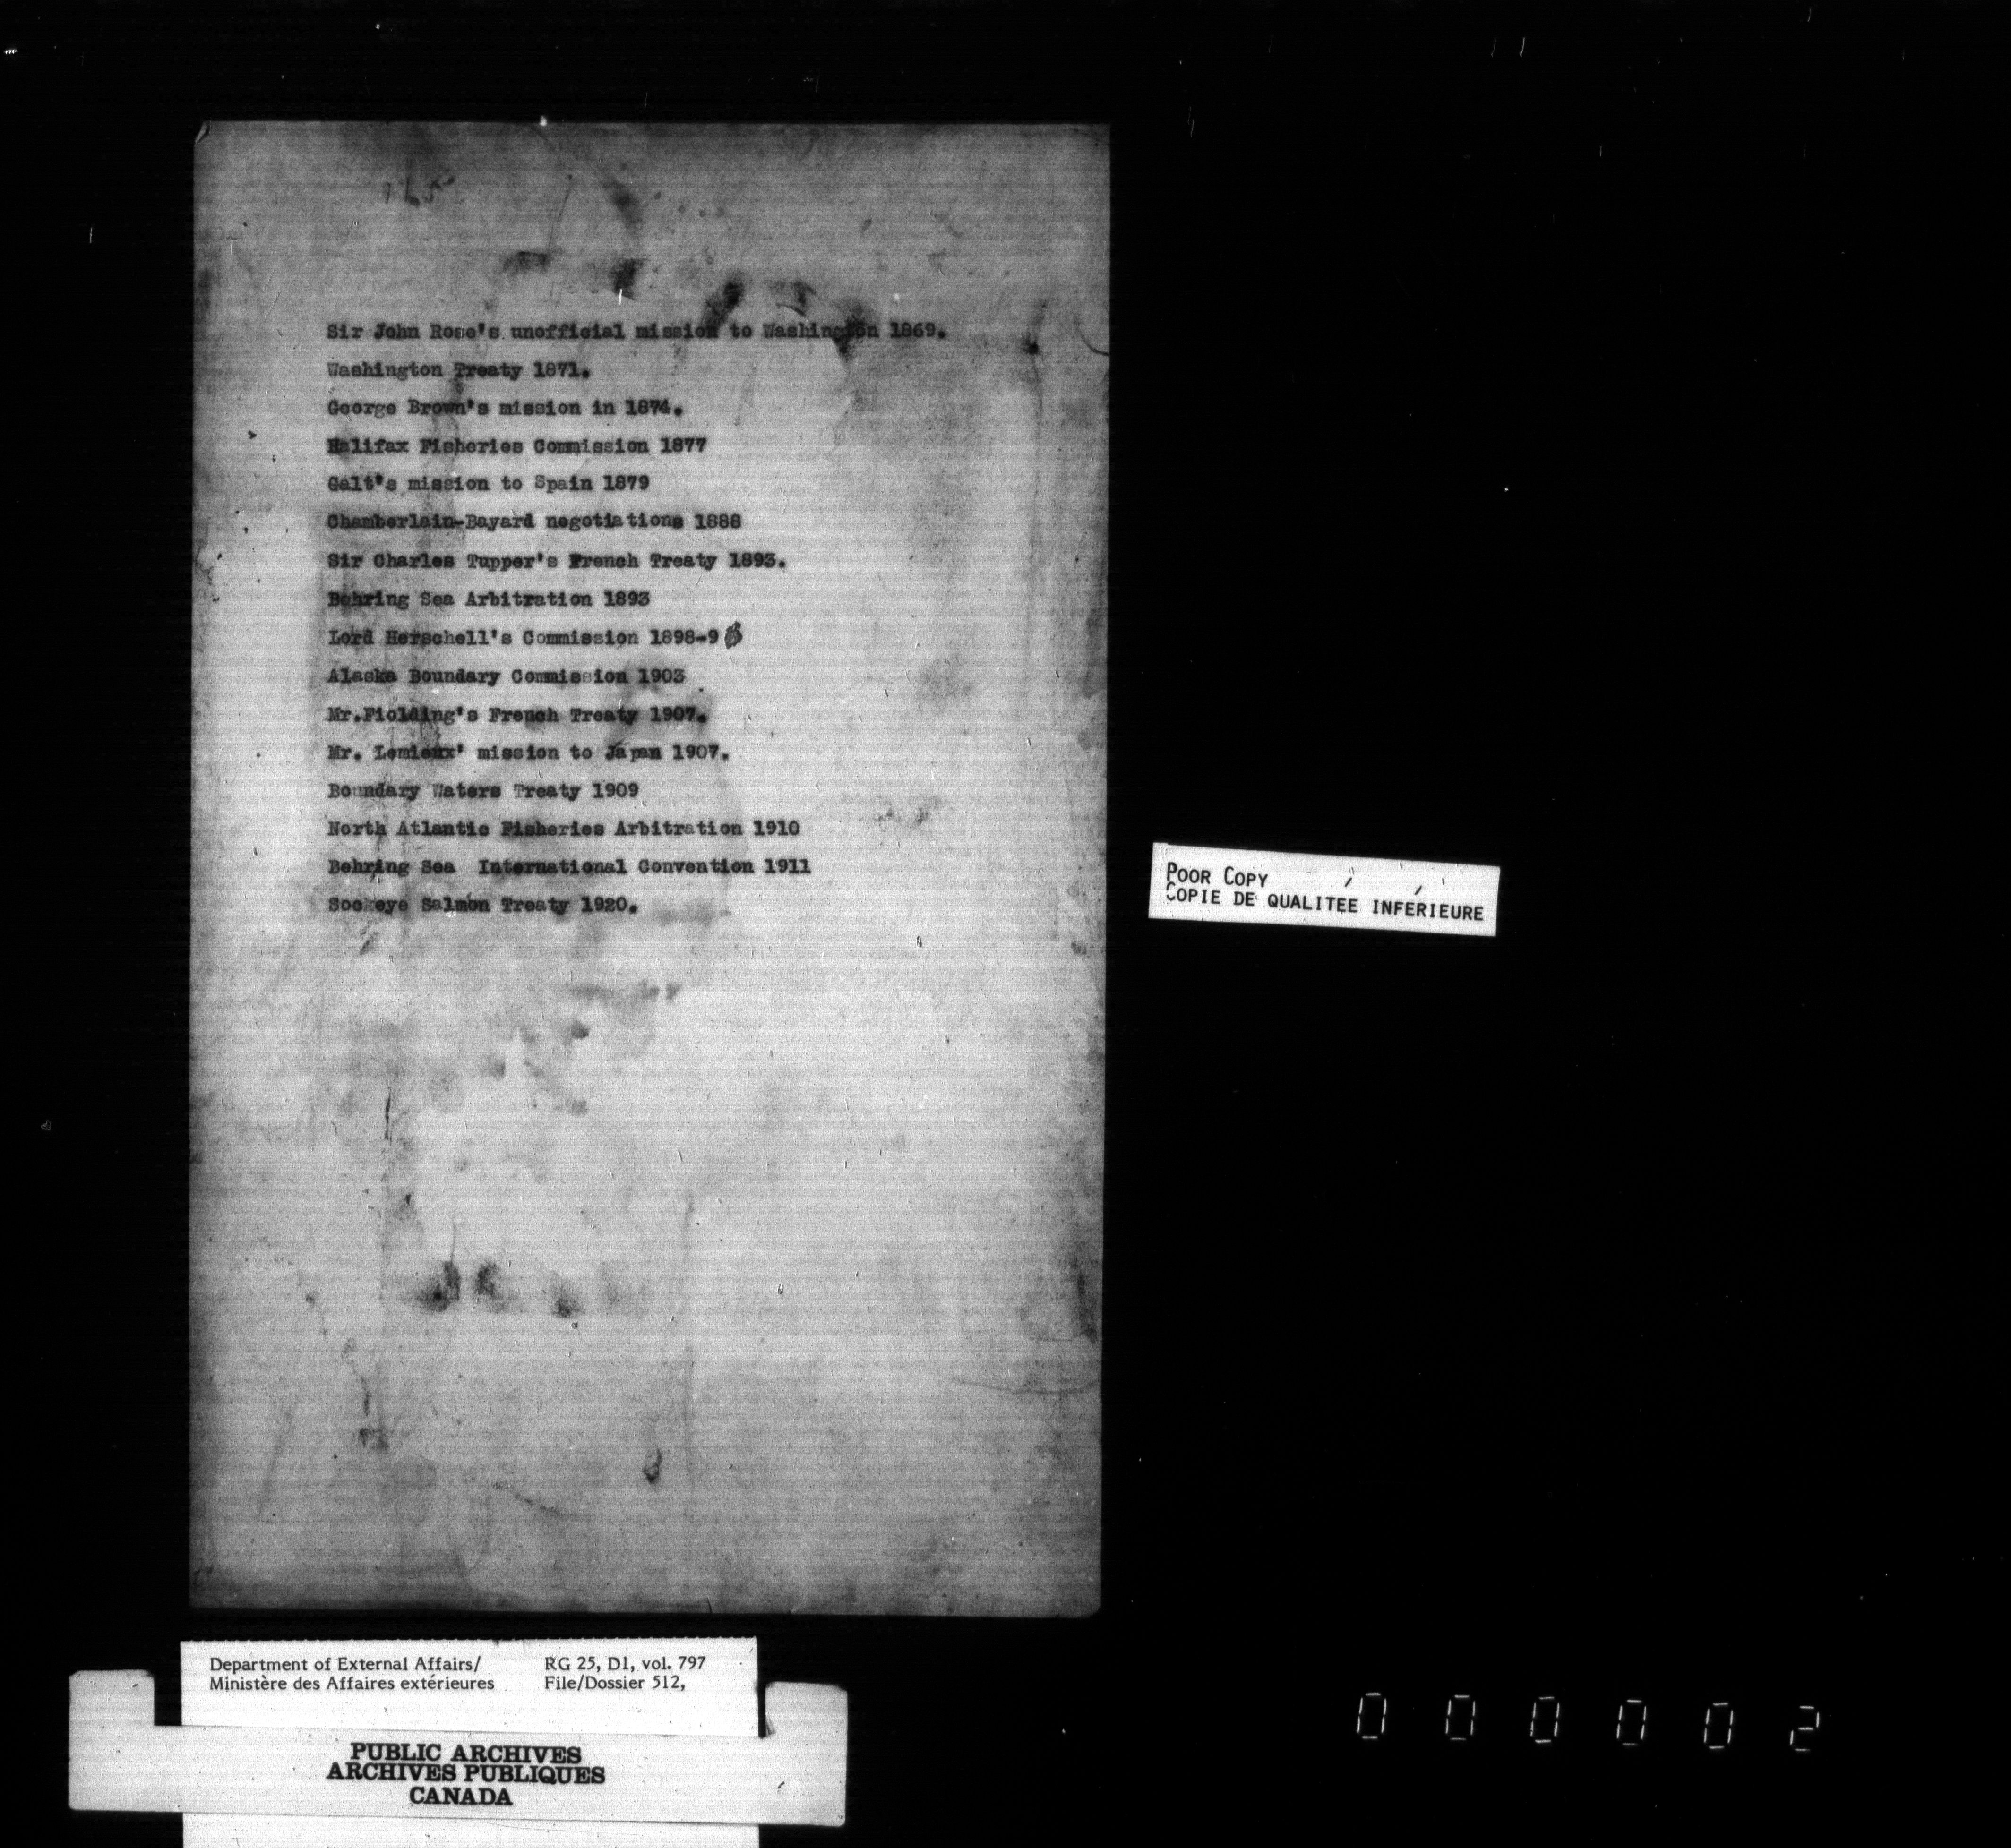 Sir John Rose's unofficial mission to Washington 1869.
Washington Treaty 1871.
George Brown's mission in 1874.
Halifax Fisheries Commission 1877
Galt's mission to Spain 1879
Chamberlain-Bayard negotiations 1888
Sir Charles Tupper's French Treaty 1893.
Behring Sea Arbitration 1893
Lord Herschell's Commission 1898-9
Alaska Boundary Commission 1903
Mr.Fielding's French Treaty 1907.
Mr. Lemieux' mission to Japan 1907.
Boundary Waters Treaty 1909
North Atlantic Fisheries Arbitration 1910
Behring Sea International Convention 1911
Sockeye Salmon Treaty 1920.
POOR COPY
COPIE DE QUALITEE INFERIEURE
Department of External Affairs/ RG 25, D1, vol. 797
Ministère des Affaires extérieures File/Dossier 512,
PUBLIC ARCHIVES
ARCHIVES PUBLIQUES
CANADA
000002